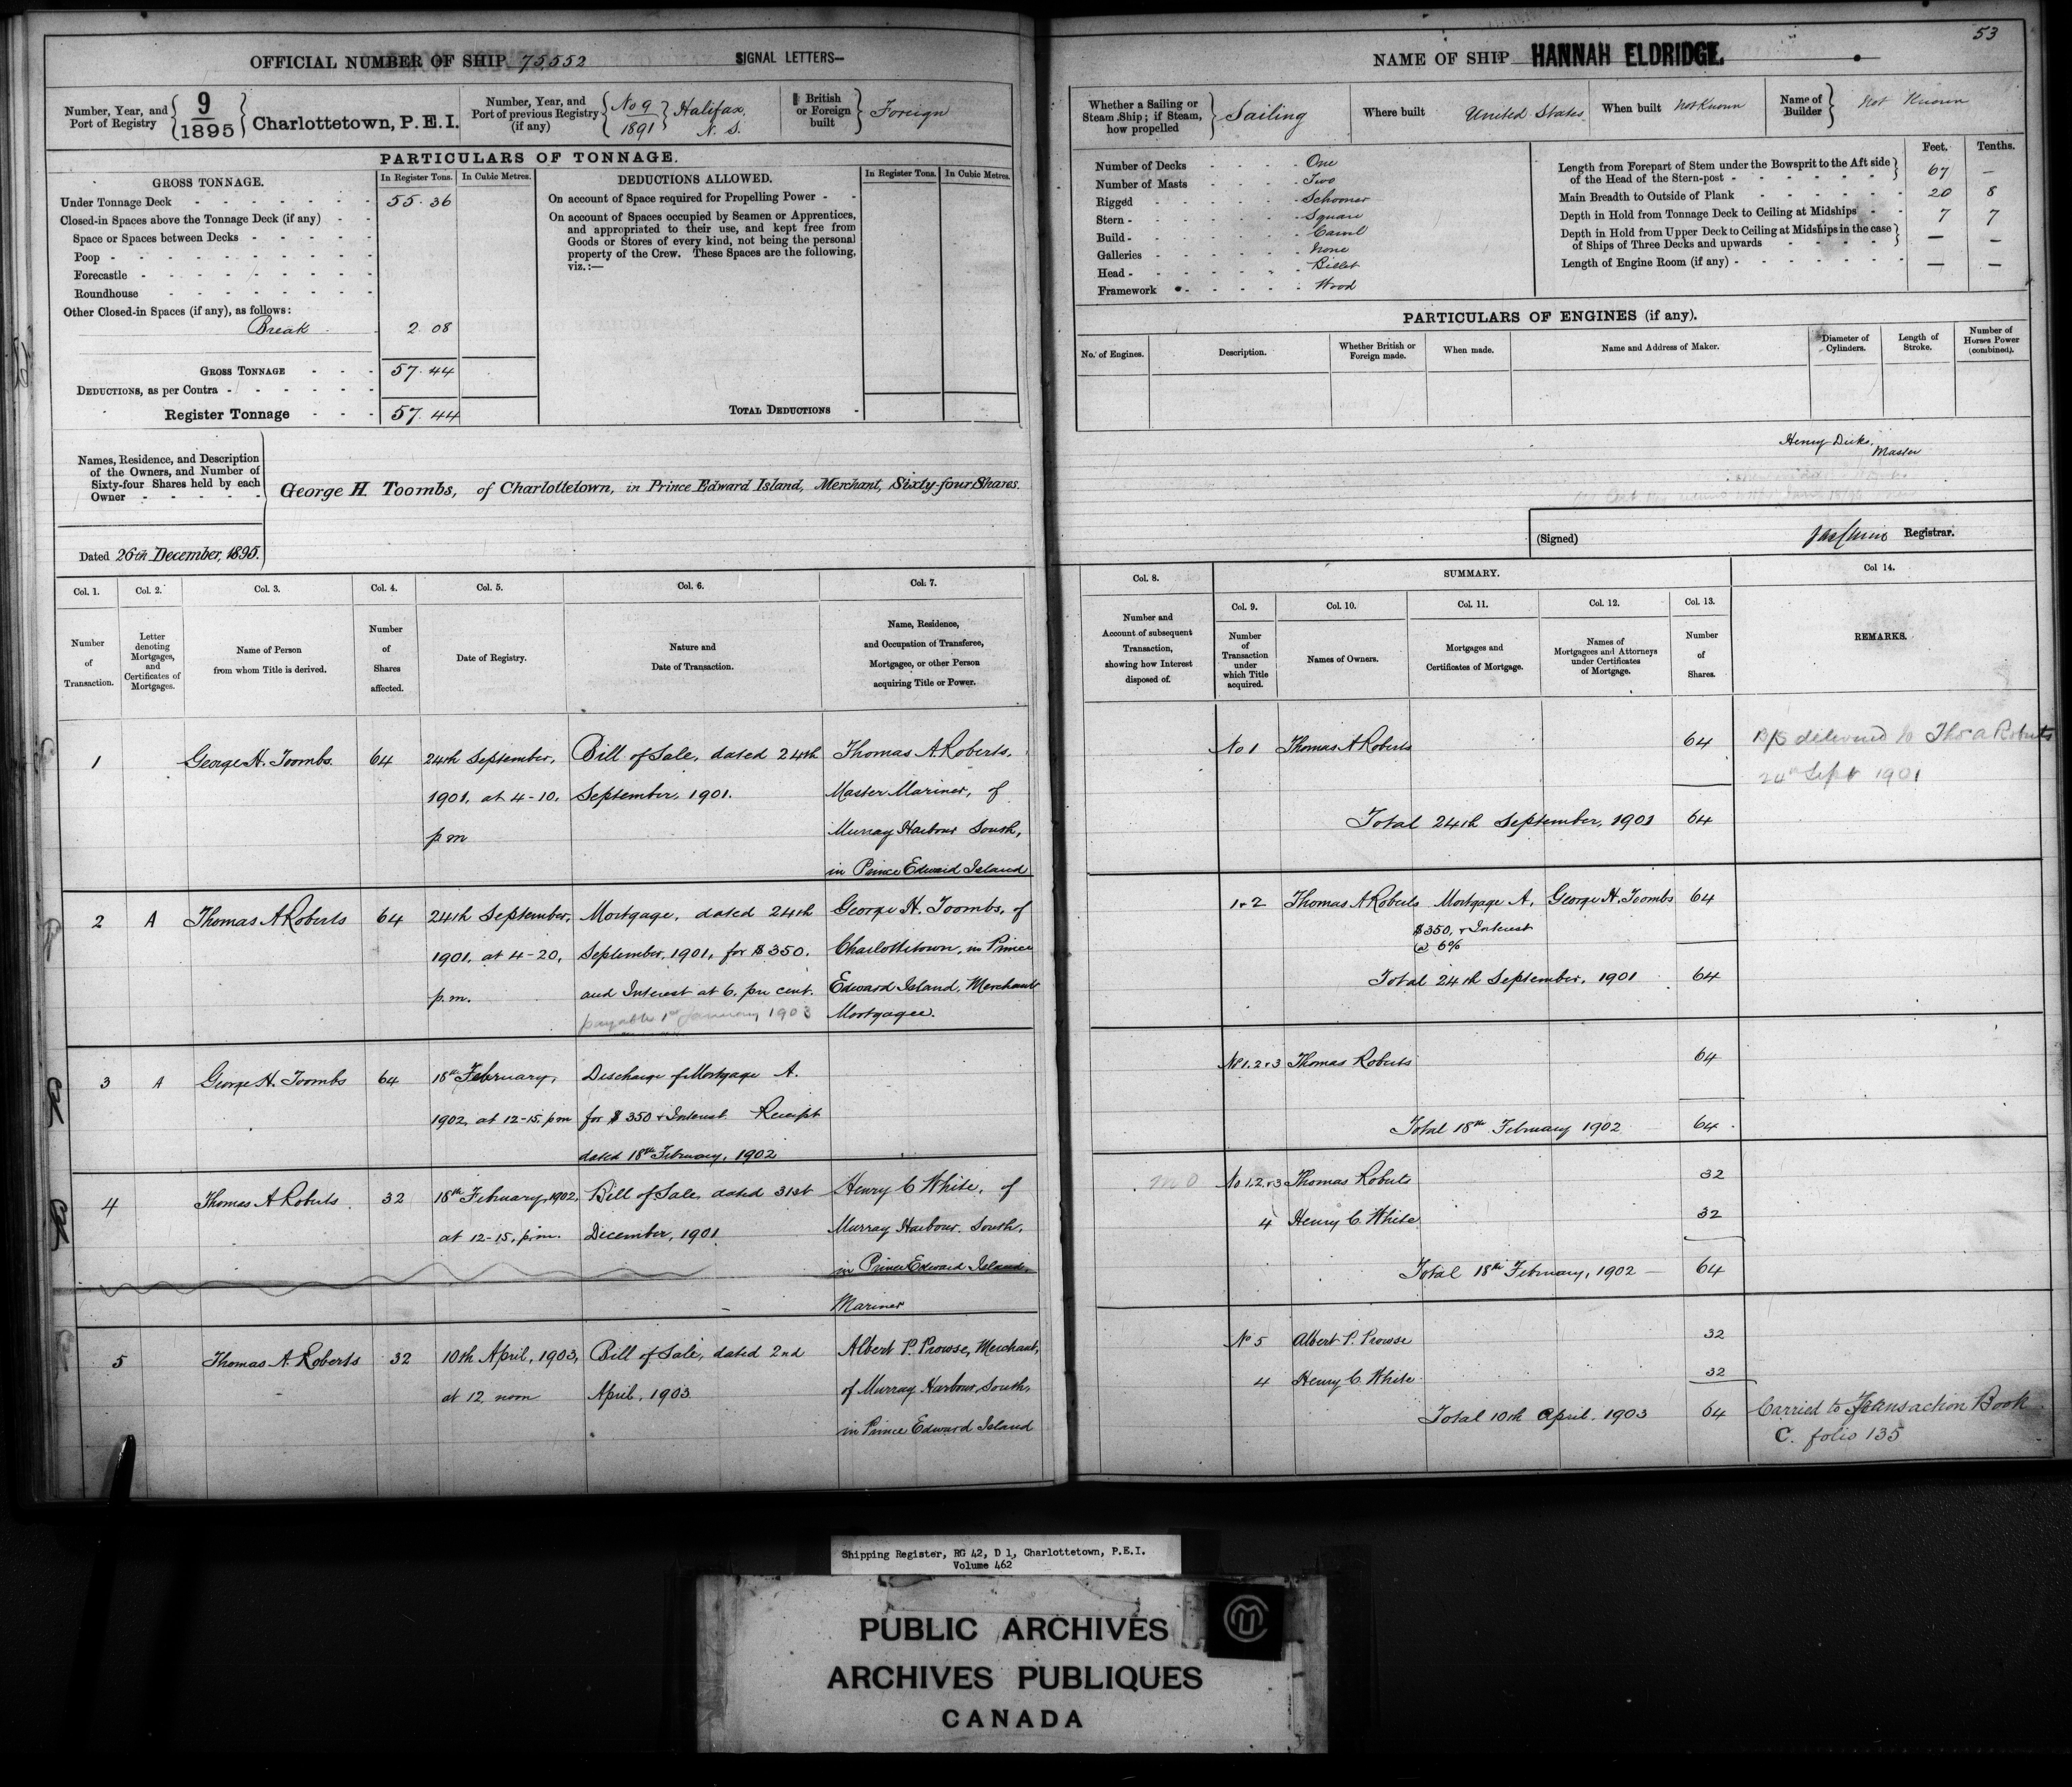 53
OFFICIAL NUMBER OF SHIP 75,552
SIGNAL LETTERS—
NAME OF SHIP HANNAH ELDRIDGE.
Number, Year, and Port of Registry { 9 / 1895 } Charlottetown, P.E.I.
Number, Year, and Port of previous Registry (if any) { No 9 / 1891 } Halifax, N. S.
British or Foreign built } Foreign
Whether a Sailing or Steam Ship; if Steam, how propelled } Sailing
Where built United States
When built Not Known
Name of Builder } Not Known
PARTICULARS OF TONNAGE.
GROSS TONNAGE.
In Register Tons.
In Cubic Metres.
Under Tonnage Deck 55.36
Closed-in Spaces above the Tonnage Deck (if any)
Space or Spaces between Decks
Poop
Forecastle
Roundhouse
Other Closed-in Spaces (if any), as follows:
Break 2.08
GROSS TONNAGE 57.44
DEDUCTIONS, as per Contra
Register Tonnage 57.44
DEDUCTIONS ALLOWED.
In Register Tons.
In Cubic Metres.
On account of Space required for Propelling Power
On account of Spaces occupied by Seamen or Apprentices,
and appropriated to their use, and kept free from
Goods or Stores of every kind, not being the personal
property of the Crew. These Spaces are the following,
viz.:—
TOTAL DEDUCTIONS
Number of Decks One
Number of Masts Two
Rigged Schooner
Stern Square
Build Carvel
Galleries None
Head Billet
Framework Wood
Feet. Tenths.
Length from Forepart of Stem under the Bowsprit to the Aft side
of the Head of the Stern-post } 67 —
Main Breadth to Outside of Plank 20 8
Depth in Hold from Tonnage Deck to Ceiling at Midships 7 7
Depth in Hold from Upper Deck to Ceiling at Midships in the case
of Ships of Three Decks and upwards } — —
Length of Engine Room (if any) — —
PARTICULARS OF ENGINES (if any).
No. of Engines.
Description.
Whether British or Foreign made.
When made.
Name and Address of Maker.
Diameter of Cylinders.
Length of Stroke.
Number of Horses Power (combined).
Names, Residence, and Description
of the Owners, and Number of
Sixty-four Shares held by each
Owner
George H. Toombs, of Charlottetown, in Prince Edward Island, Merchant, Sixty-four Shares.
Dated 26th December, 1895.
Henry Dicks,
Master
(Signed) Registrar.
Col. 1.
Number of Transaction.
Col. 2.
Letter denoting Mortgages, and Certificates of Mortgages.
Col. 3.
Name of Person from whom Title is derived.
Col. 4.
Number of Shares affected.
Col. 5.
Date of Registry.
Col. 6.
Nature and Date of Transaction.
Col. 7.
Name, Residence, and Occupation of Transferee, Mortgagee, or other Person acquiring Title or Power.
Col. 8.
Number and Account of subsequent Transaction, showing how Interest disposed of.
SUMMARY.
Col. 9.
Number of Transaction under which Title acquired.
Col. 10.
Names of Owners.
Col. 11.
Mortgages and Certificates of Mortgage.
Col. 12.
Names of Mortgagees and Attorneys under Certificates of Mortgage.
Col. 13.
Number of Shares.
Col 14.
REMARKS.
1
George H. Toombs.
64
24th September,
1901, at 4-10,
p m
Bill of Sale, dated 24th
September, 1901.
Thomas A. Roberts,
Master Mariner, of
Murray Harbour South,
in Prince Edward Island
No 1 Thomas A Roberts 64
Total 24th September, 1901 64
B/S delivered to Thos A Roberts
24th Sept 1901
2
A
Thomas A Roberts
64
24th September,
1901, at 4-20,
p.m.
Mortgage, dated 24th
September, 1901, for $350.
and Interest at 6. per cent.
payable 1st January 1903
George H. Toombs, of
Charlottetown, in Prince
Edward Island, Merchant
Mortgagee.
1 & 2 Thomas A Roberts Mortgage A. George H. Toombs 64
$350, & Interest
@ 6%
Total 24th September, 1901 64
3
A
George H. Toombs
64
18th February,
1902, at 12-15, p m
Discharge of Mortgage A.
for $350 & Interest. Receipt
dated 18th February, 1902
No 1, 2 & 3 Thomas Roberts 64
Total 18th February 1902 64
4
Thomas A Roberts.
32
18th February, 1902,
at 12-15, p.m.
Bill of Sale, dated 31st
December, 1901
Henry C White, of
Murray Harbour, South,
in Prince Edward Island,
Mariner
No 1, 2, & 3 Thomas Roberts 32
4 Henry C. White 32
Total 18th February, 1902 — 64
5
Thomas A. Roberts
32
10th April, 1903,
at 12, noon
Bill of Sale, dated 2nd
April, 1903
Albert P. Prowse, Merchant,
of Murray Harbour, South,
in Prince Edward Island
No 5 Albert P. Prowse 32
4 Henry C. White 32
Total 10th April, 1903 64
Carried to Transaction Book
C. folio 135
Shipping Register, RG 42, D 1, Charlottetown, P.E.I.
Volume 462
PUBLIC ARCHIVES
ARCHIVES PUBLIQUES
CANADA